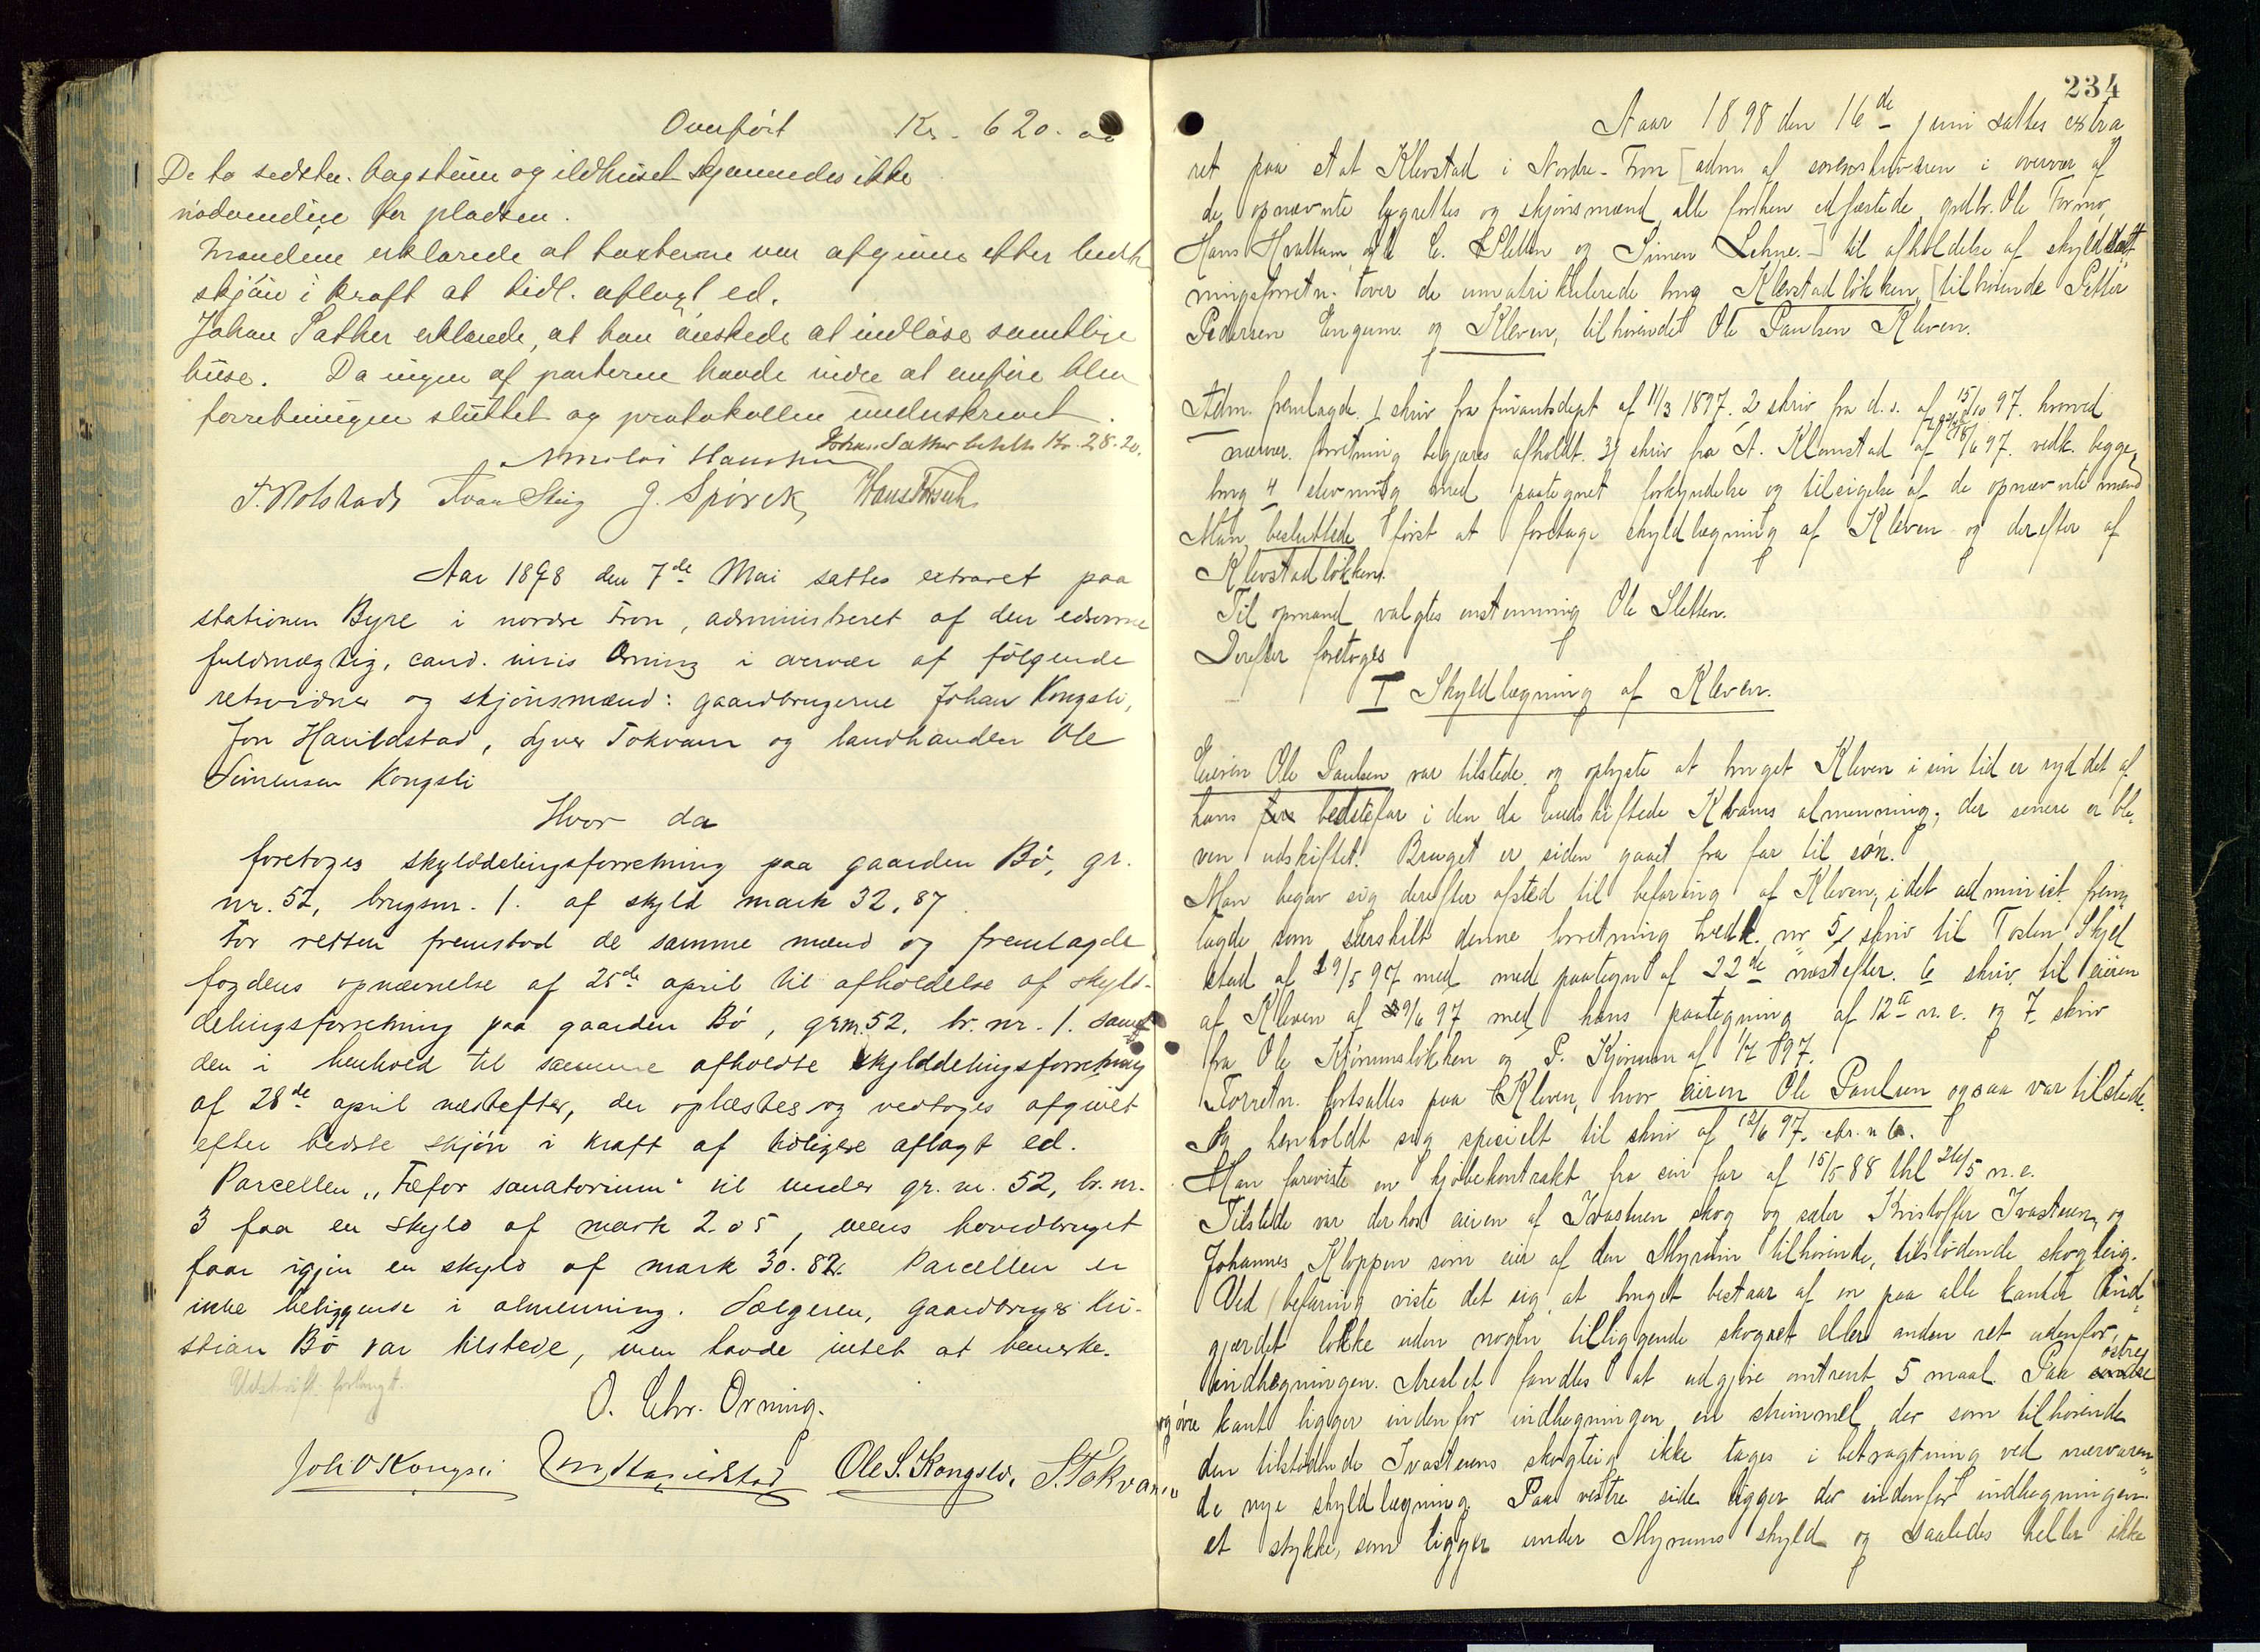 Overført Kr. 620.00
De to sidste. bagstuen og ildhuset skjønnedes ikke
nødvendige for pladsen.
Mændene erklærede at taxterne var afgivne efter bedste
skjøn i kraft at tidl. aflagt ed.
Johan Sæther erklærede, at han ønskede at indløse samtlige
huse. Da ingen af parterne havde videre at anføre blev
forretningen sluttet og protokollen underskrevet.
Johan Sæther betalte Kr. 28.20.
Nikolai Hansen
Ivar Steig J. Spørck
Aar 1898 den 7de Mai sattes extraret paa
stationen Byre i nordre Fron, administreret af den edsvorne
fuldmægtig, cand. juris Orning i overvær af følgende
retsvidner og skjønsmænd: gaardbrugerne Johan Kongsli,
Jon Harildstad, Syver Tokvam og landhandler Ole
Simensen Kongsli
Hvor da
foretoges skylddelingsforretning paa gaarden Bø, gr.
nr. 52, brugsnr. 1. af skyld mark 32,87.
For retten fremstod de samme mænd og fremlagde
fogdens opnævnelse af 25de april til afholdelse af skyld-
delingsforretning paa gaarden Bø, grn. 52. br. nr. 1. samt
den i henhold til samme afholdte skylddelingsforretning
af 28de april næstefter, der oplæstes og vedtoges afgivet
efter bedste skjøn i kraft af tidligere aflagt ed.
Parcellen „Fæfor sanatorium" vil under gr. nr. 52, br. nr.
3 faa en skyld af mark 2.05, mens hovedbruget
faar igjen en skyld af mark 30.82. Parcellen er
ikke beliggende i almenning. Sælgeren, gaardbruger Kri-
stian Bø var tilstede, men havde intet at bemerke.
Udskrift forlangt.
O. Chr. Orning.
Joh. O Kongsli Jon Harildstad Ole S. Kongsli. S. Tokvam
234
Aar 1898 den 16de juni sattes extra
ret paa etat Klevstad i Nordre-Fron [adm. af sorenskriveren i overvær af
de opnævnte lagrettes og skjønsmænd alle forhen edfæstede grdbr. Ole Formo,
Hans Hvattum, Ole E. Sletten og Simen Lehne.] til afholdelse af skyldsæt
ningsforretn. over de umatrikulerede brug Klevstadløkken, [tilhørende Petter
Pedersen Engum og Kleven, tilhørende Ole Paulsen Kleven.
Adm. fremlagde 1 skriv fra finantsdept af 11/3 1897. 2 skriv fra d. s. af 15/10 97. hvorved
nærvær. forretning begjæres afholdt. 3) skriv fra A. Klomstad af 18/6 97. vedk. begge
brug 4 stevning med paategnet forkyndelse og tilsigelse af de opnævnte mænd
Man besluttede først at foretage skyldlægning af Kleven og derefter af
Klevstadløkken.
Til opmand valgtes enstemmig Ole Sletten.
Derefter foretoges
I Skyldlægning af Kleven.
Eieren Ole Paulsen var tilstede og oplyste at bruget Kleven i sin tid er ryddet af
hans bedstefar i den da uudskiftede Kvams almenning, der senere er ble,
ven udskiftet. Bruget er siden gaaet fra far til søn.
Man begav sig derefter afsted til befaring af Kleven, idet administ. frem,
lagde som særskilt denne forretning vedk. nr 5) skriv til Tosten Skjel
stad af 19/5 97 med med paategn af 22de næstefter. 6 skriv. til eieren
af Kleven af 9/6 97 med hans paategning af 12te n. e. og 7. skriv
fra Ole Kjørumsløkken og P. Kjørum af 1/7 97.
Forretn. fortsattes paa Kleven, hvor eieren Ole Paulsen ogsaa var tilstede.
Og henholdt sig specielt til skriv af 12/6 97.
Han foreviste en kjøbekontrakt fra sin far af 15/5 88 thl 24/5 n. e.
Tilstede var derhos eieren af Ivastuen skog og sæter Kristoffer Ivastuen, og
Johannes Kloppen som eier af den Myrum tilhørende, tilstødende skogteig.
Ved befaring viste det sig at bruget bestaar af en paa alle kanter ind,
gjærdet løkke uden nogen tilliggende skogret eller anden ret udenfor
indhegningen. Arealet fandtes at udgjøre omtrent 5 maal. Paa østre
og øvre kant ligger indenfor indhegningen en strimmel der som tilhørende
den tilstødende Ivastuens skogteig ikke tages i betragtning ved nærværen„
de nye skyldlægning. Paa vestre side ligger der indenfor indhegningen
et stykke, som ligger under Myrums skyld og saaledes heller ikke